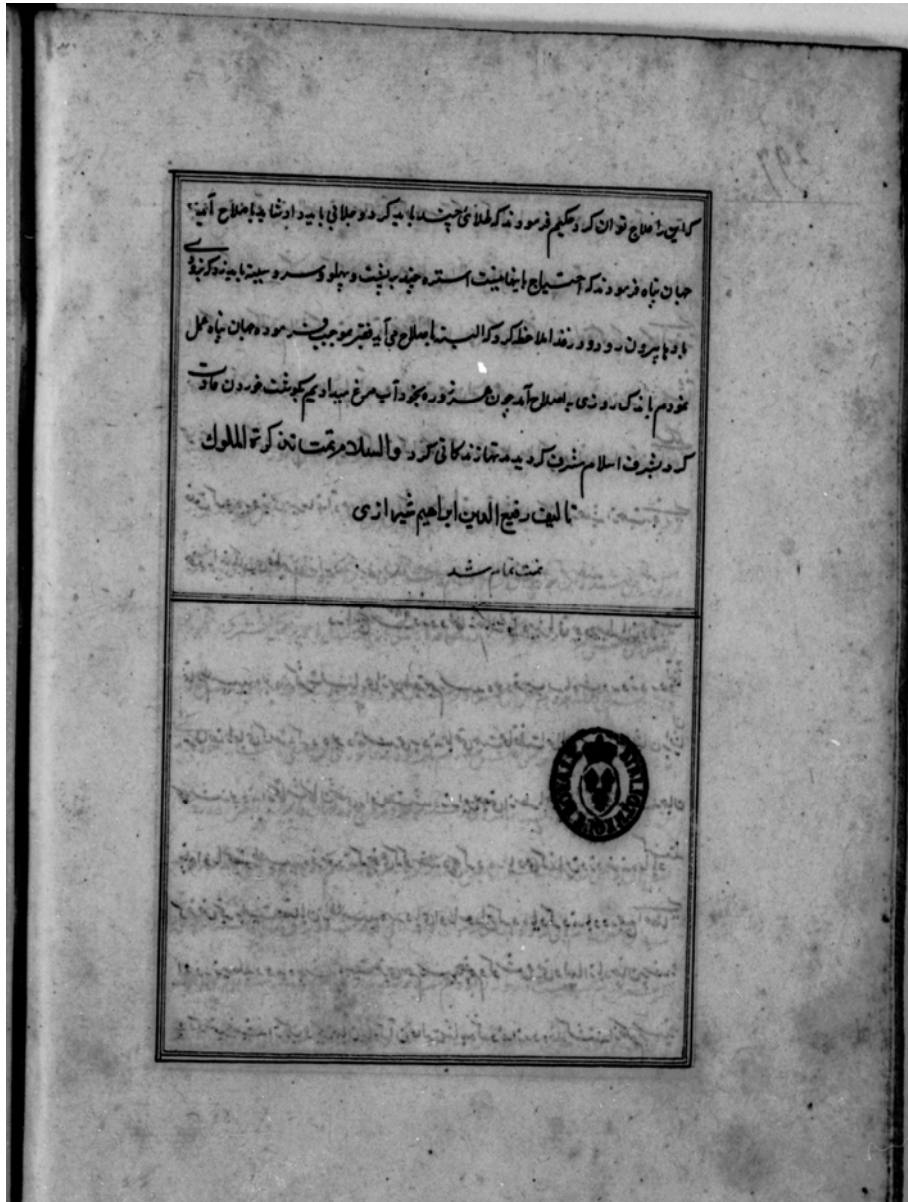 که این را علاج توان کرد حکیم فرمودند که طلائی چند باید کرد و جلابی باید داد شاید باصلاح آید
جهان پناه فرمودند که احتیاج باینها نیست استره چند به پشت و پهلو و سر و سینه باید زد که
بادها بیرون رود و روغنها ملاحظه کرد که البته باصلاح می آید فقیر موجب فرموده جهان پناه عمل
نمودم باندک روزی به اصلاح آمد چون هر روزه بخود آب مرغ میدادیم بگوشت خوردن عادت
کرد بشرف اسلام مشرف گردید مدتها زندگانی کرد والسلام تمت تذکرة الملوك
تالیف رفیع الدین ابراهیم شیرازی
تمت تمام شد
BIBLIOTHEQUE ROYALE